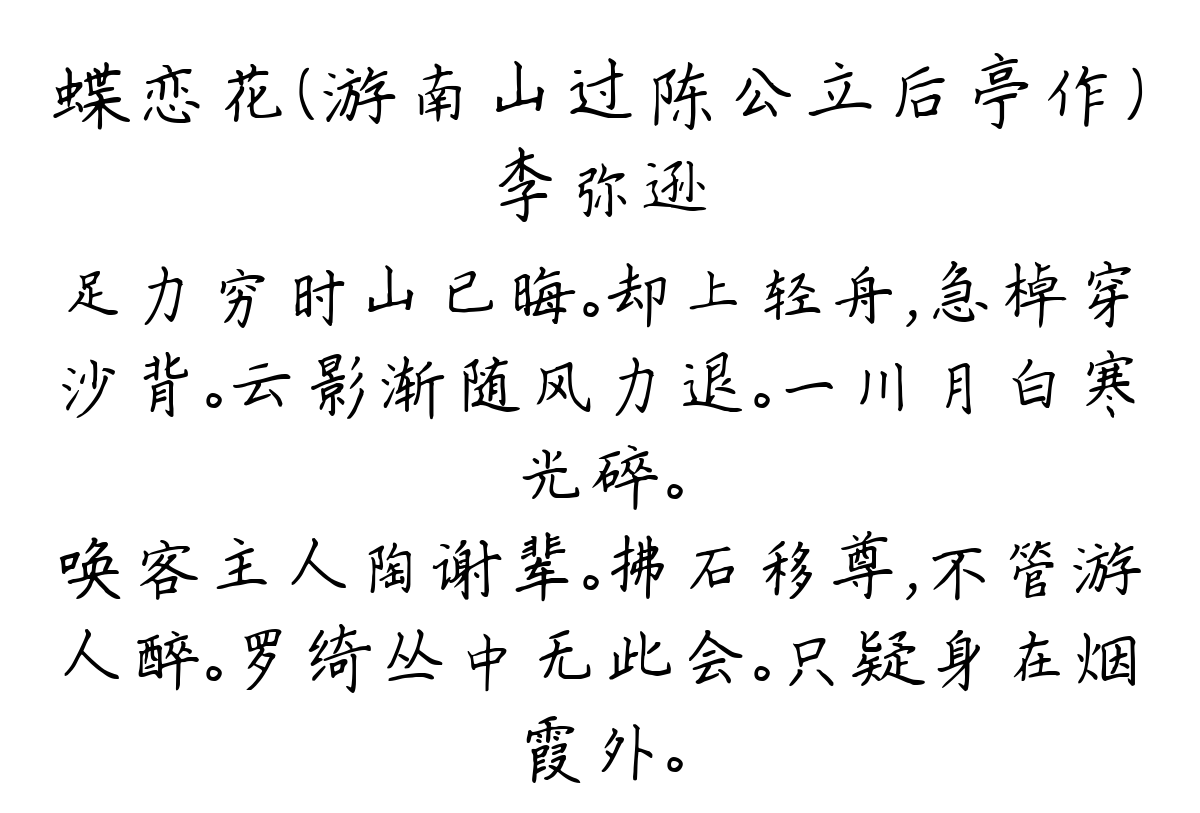 蝶恋花(游南山过陈公立后亭作)
李弥逊
足力穷时山已晦。却上轻舟,急棹穿
沙背。云影渐随风力退。一川月白寒
光碎。
唤客主人陶谢辈。拂石移尊,不管游
人醉。罗绮丛中无此会。只疑身在烟
霞外。